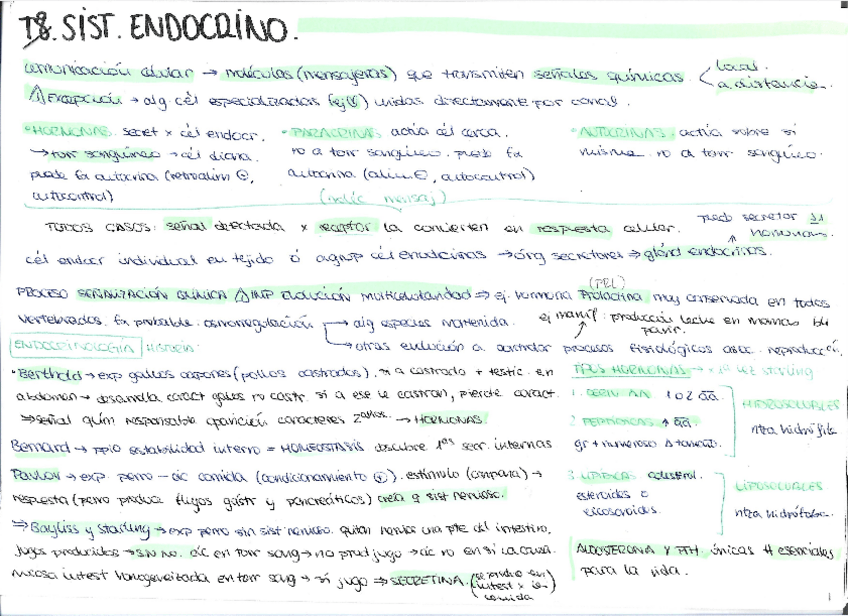 T8. SIST. ENDOCRINO.
comunicación celular → moléculas (mensajeras) que transmiten señales químicas < local. a distancia.
⚠ Excepción → alg. cél especializadas unidas directamente por canal.
· HORMONAS. secret x cél endocr.
→ torr sanguíneo → cél diana.
puede fx autocrina (retroalim ⊖,
autocontrol)
· PARACRINAS actúa cél cerca.
no a torr sanguíneo. puede fx
autocrina (alim ⊖, autocontrol)
· AUTOCRINAS: actúa sobre sí
misma. no a torr sanguíneo.
(moléc mensaj)
TODOS CASOS: señal detectada x receptor la convierten en respuesta celular.
pued secretor ≥1 hormonas.
cél endocr individual en tejido ó agrup cél endocrinas → órg secretores → glánd endocrinas.
PROCESO SEÑALIZACIÓN QUÍMICA ⚠ IMP EVOLUCIÓN multicelularidad → ej. hormona Prolactina (PRL) muy conservada en todos
vertebrados. Fx probable. osmorregulación → alg especies mantenida. ej mamíf: producción leche en mamas
parir.
→ otras evolución a controlar procesos fisiológicos asoc. reproducción.
ENDOCRINOLOGÍA HISTORIA:
· Berthold → exp gallos capones (pollos castrados). si a castrado + testíc. en
abdomen → desarrolla caract gallos no castr. si a ese le castran, pierde caract.
⇒ señal quím responsable aparición caracteres 2arios. → HORMONAS.
Bernard → ppio estabilidad interno = HOMEOSTASIS descubre 1as secr. internas
Pavlov → exp. perro - ác comida (condicionamiento). estímulo (campana) →
respuesta (perro produce flujos gástr y pancreáticos) creía q sist nervioso.
⇒ Bayliss y Starling → exp perro sin sist nervioso. quitan nervios una pte del intestino.
jugos producidos → SN no. ác en torr sang → no prod jugo → ác no en sí la causa.
mucosa intest homogeneizada en torr sang → sí jugo ⇒ SECRETINA.
TIPOS HORMONAS → x 1ª vez starling
1. DERIV AA 1 o 2 aa.
2. PEPTÍDICAS ↑ aa
gr + numeroso ≠ tamaño.
HIDROSOLUBLES
ntza hidrófila
3. LIPÍDICAS colesterol.
esteroides o
eicosanoides.
LIPOSOLUBLES
ntza hidrófoba.
ALDOSTERONA Y PTH únicas H esenciales
para la vida.
1